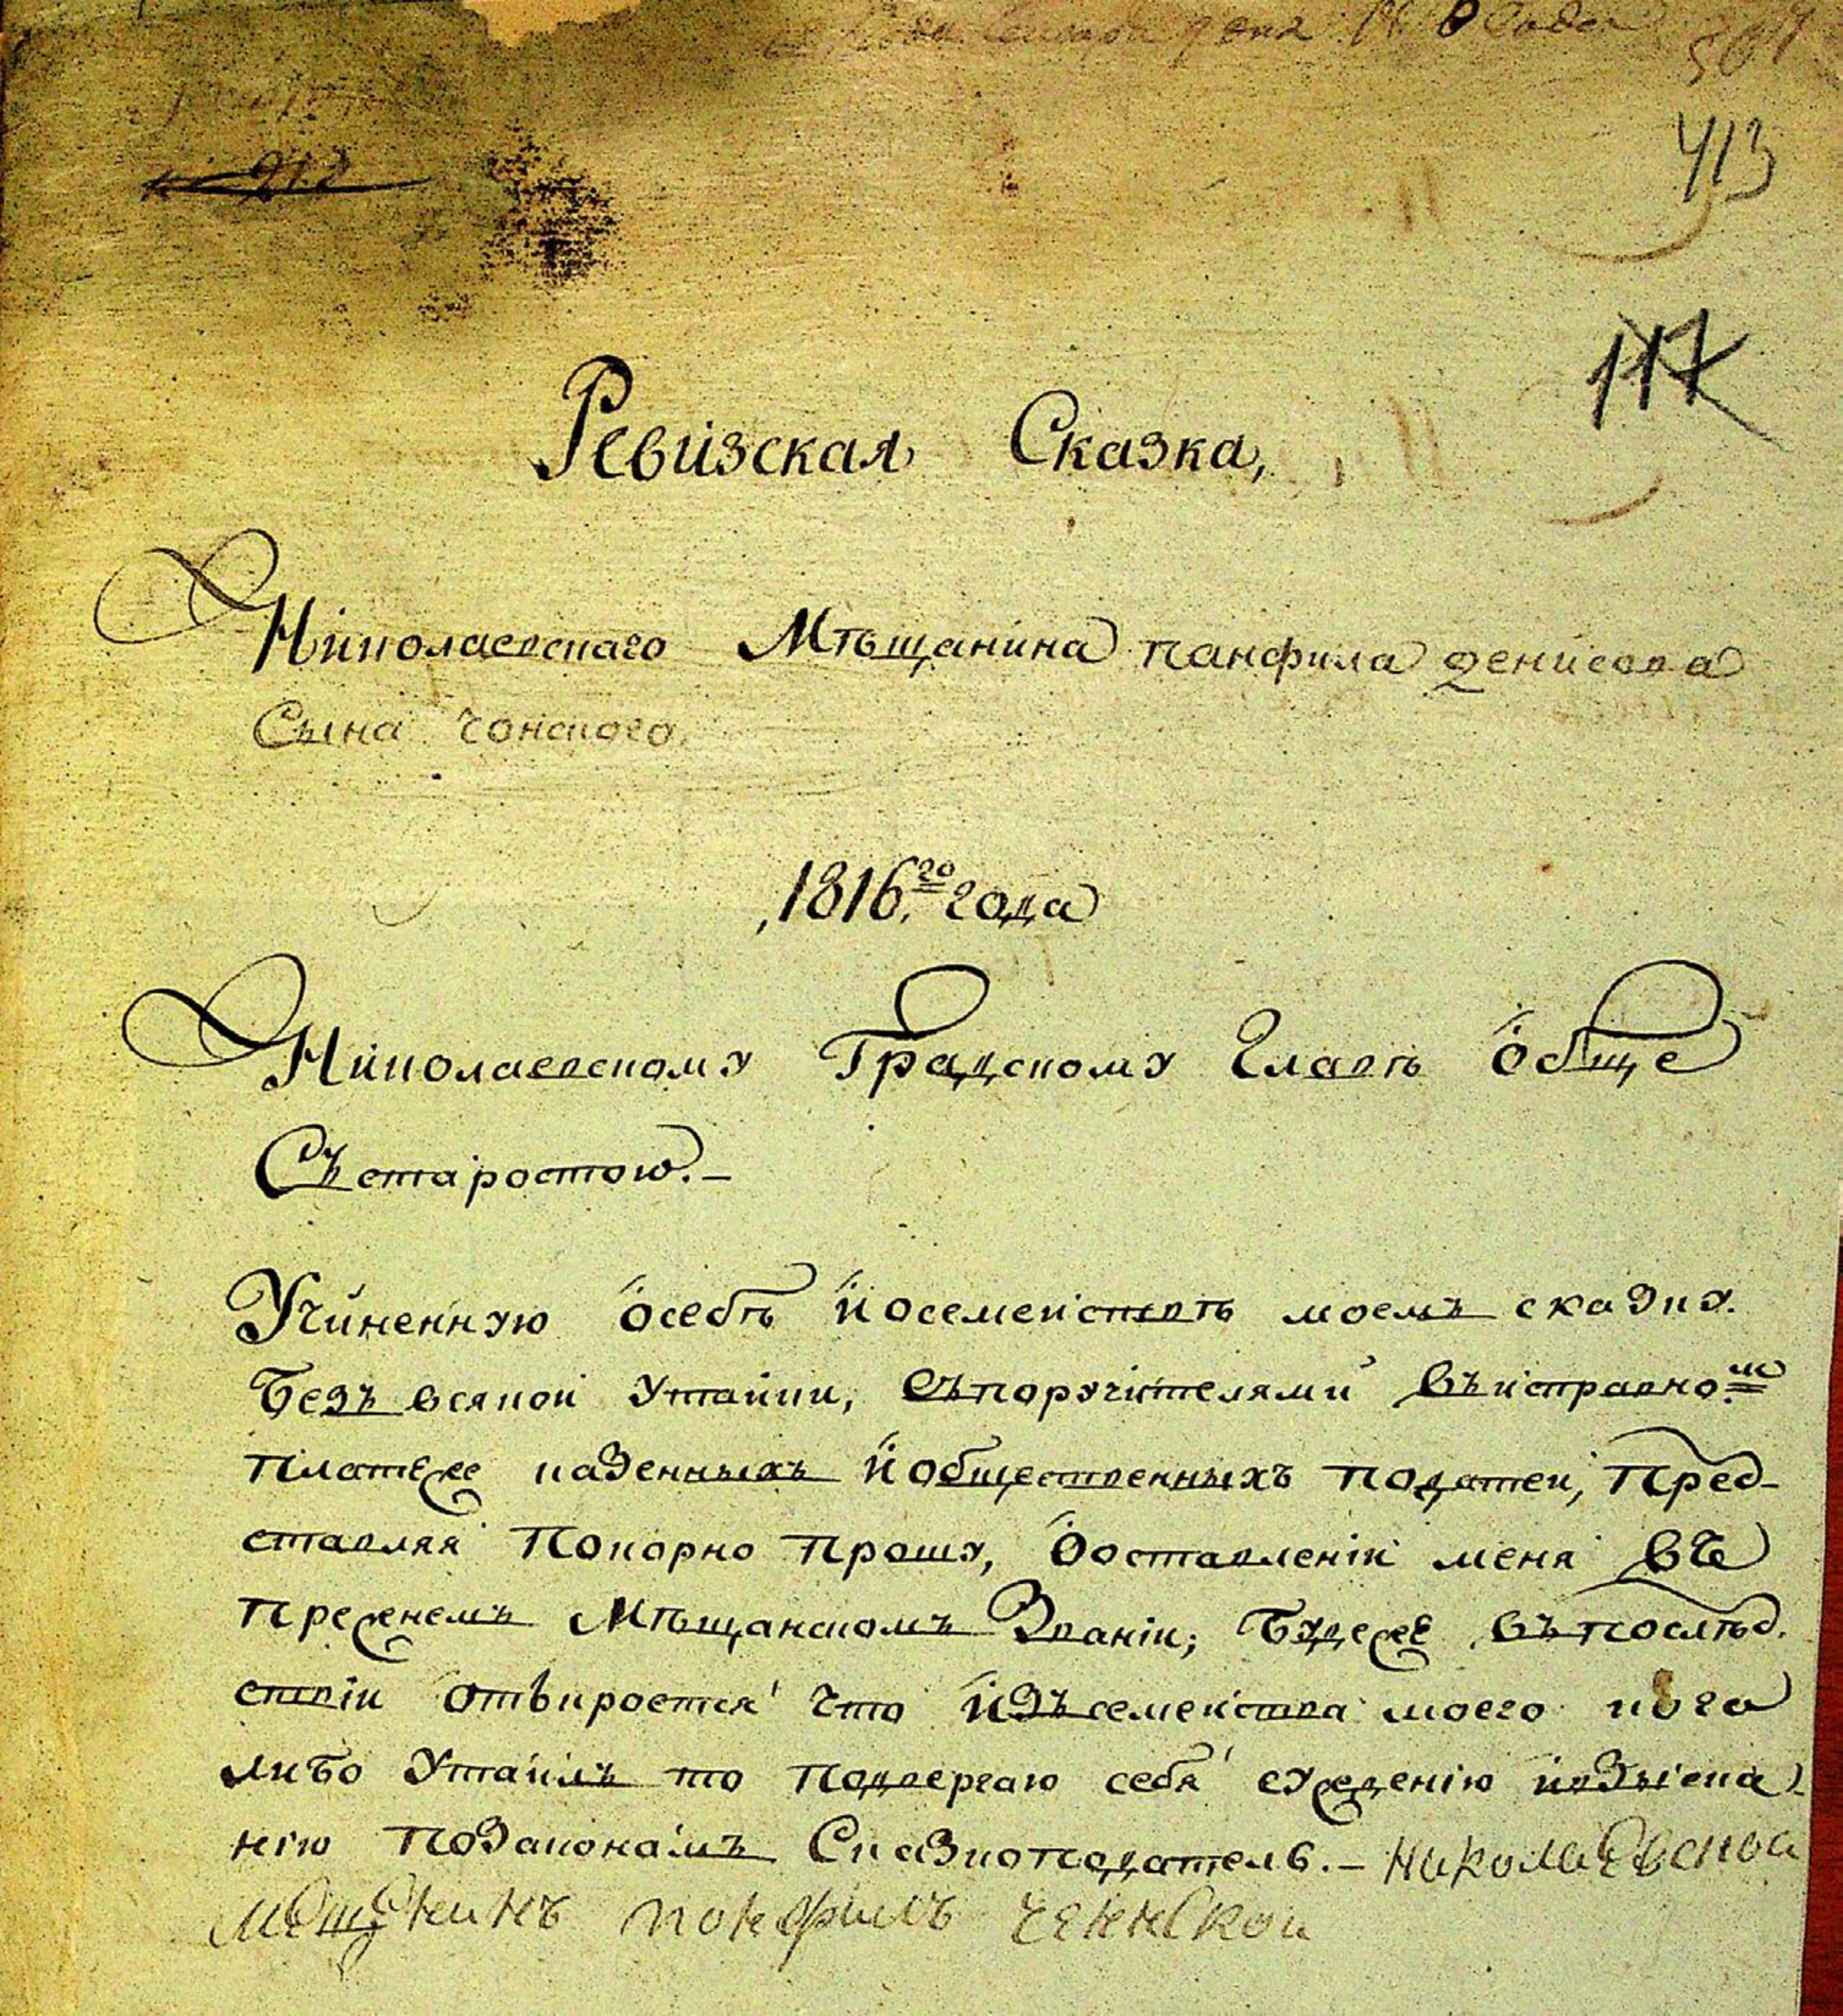 года
413
117
Ревизская Сказка,
Николаевскаго Мѣщанина панфила денисова
Сына чонского.
1816.го года
Николаевскому Градскому Главѣ обще
Съ старостою.–
Учиненную осебѣ и осемействѣ моемъ сказку.
безъ всякой утайки, съпоручителями въисправно.м
платеже казенныхъ и общественныхъ податей, пред-
ставляя покорно прошу, ооставленіи меня въ
прежнемъ Мѣщанскомъ Званіи; буде же въпослѣд.
ствіи откроется что изъ семейства моего кого
либо утаилъ то подвергаю себя сужденію ивзыска-
нію позаконамъ Сказкоподатель.– Николаевской
панфилъ